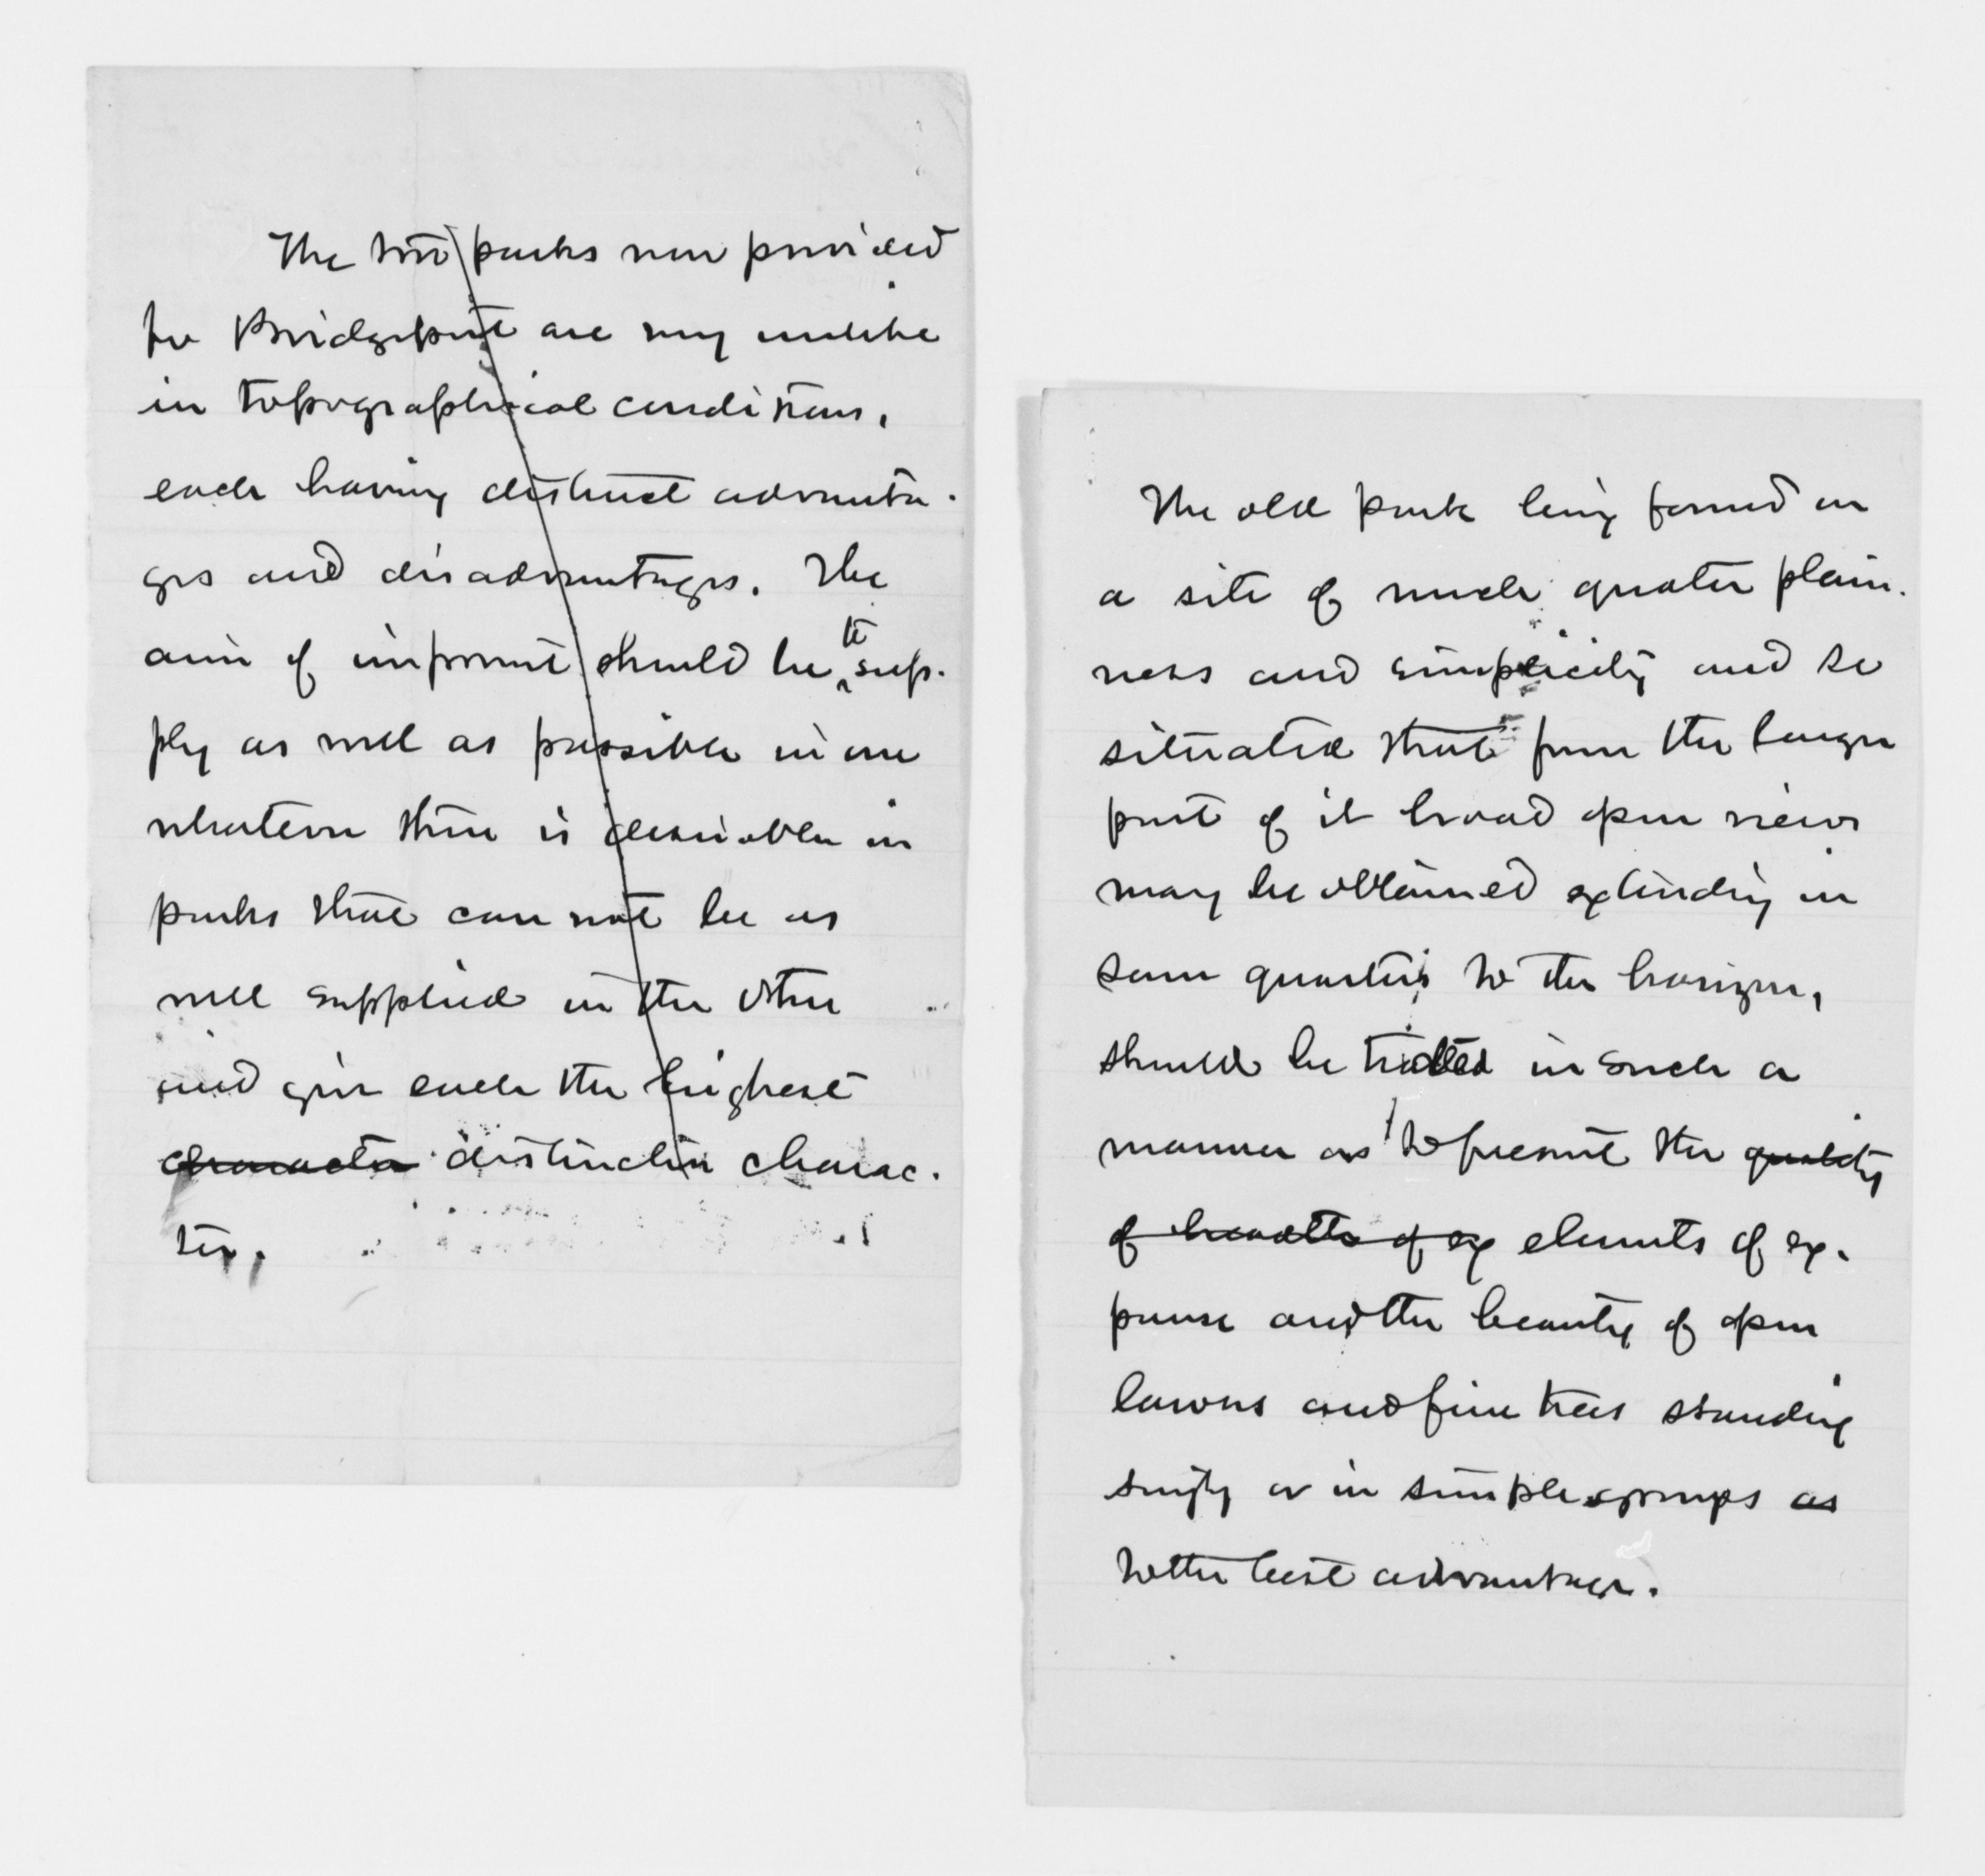 The two parks now provided
for Bridgeport are very unlike
in topographical conditions,
each having distinct advanta-
ges and disadvantages. The
aim of improvemt should be to sup-
ply as well as possible in one
whatever there is desirable in
parks that can not be as
well supplied in the other
and give each the highest
character distinctive charac-
ter.
The old park being formed on
a site of much greater plain-
ness and simplicity and so
situated that from the larger
part of it broad open views
may be obtained extending in
some quarters to the horizon,
should be treated in such a
manner as to present the quality
of breadth of ex elements of ex-
panse and the beauty of open
lawns and fine trees standing
singly or in simple groups as
to the best advantage.